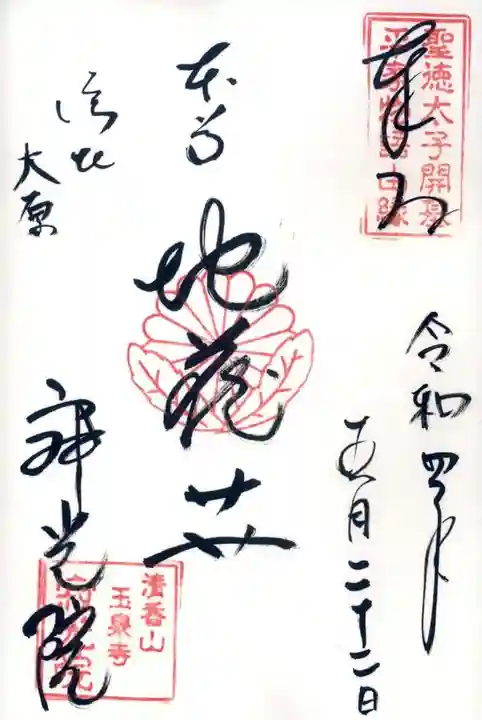 聖徳太子開基
平家物語由縁
奉拝
令和四年
五月二十二日
本尊
地蔵𦬇
洛北
大原
寂光院
清香山
玉泉寺
寂光院